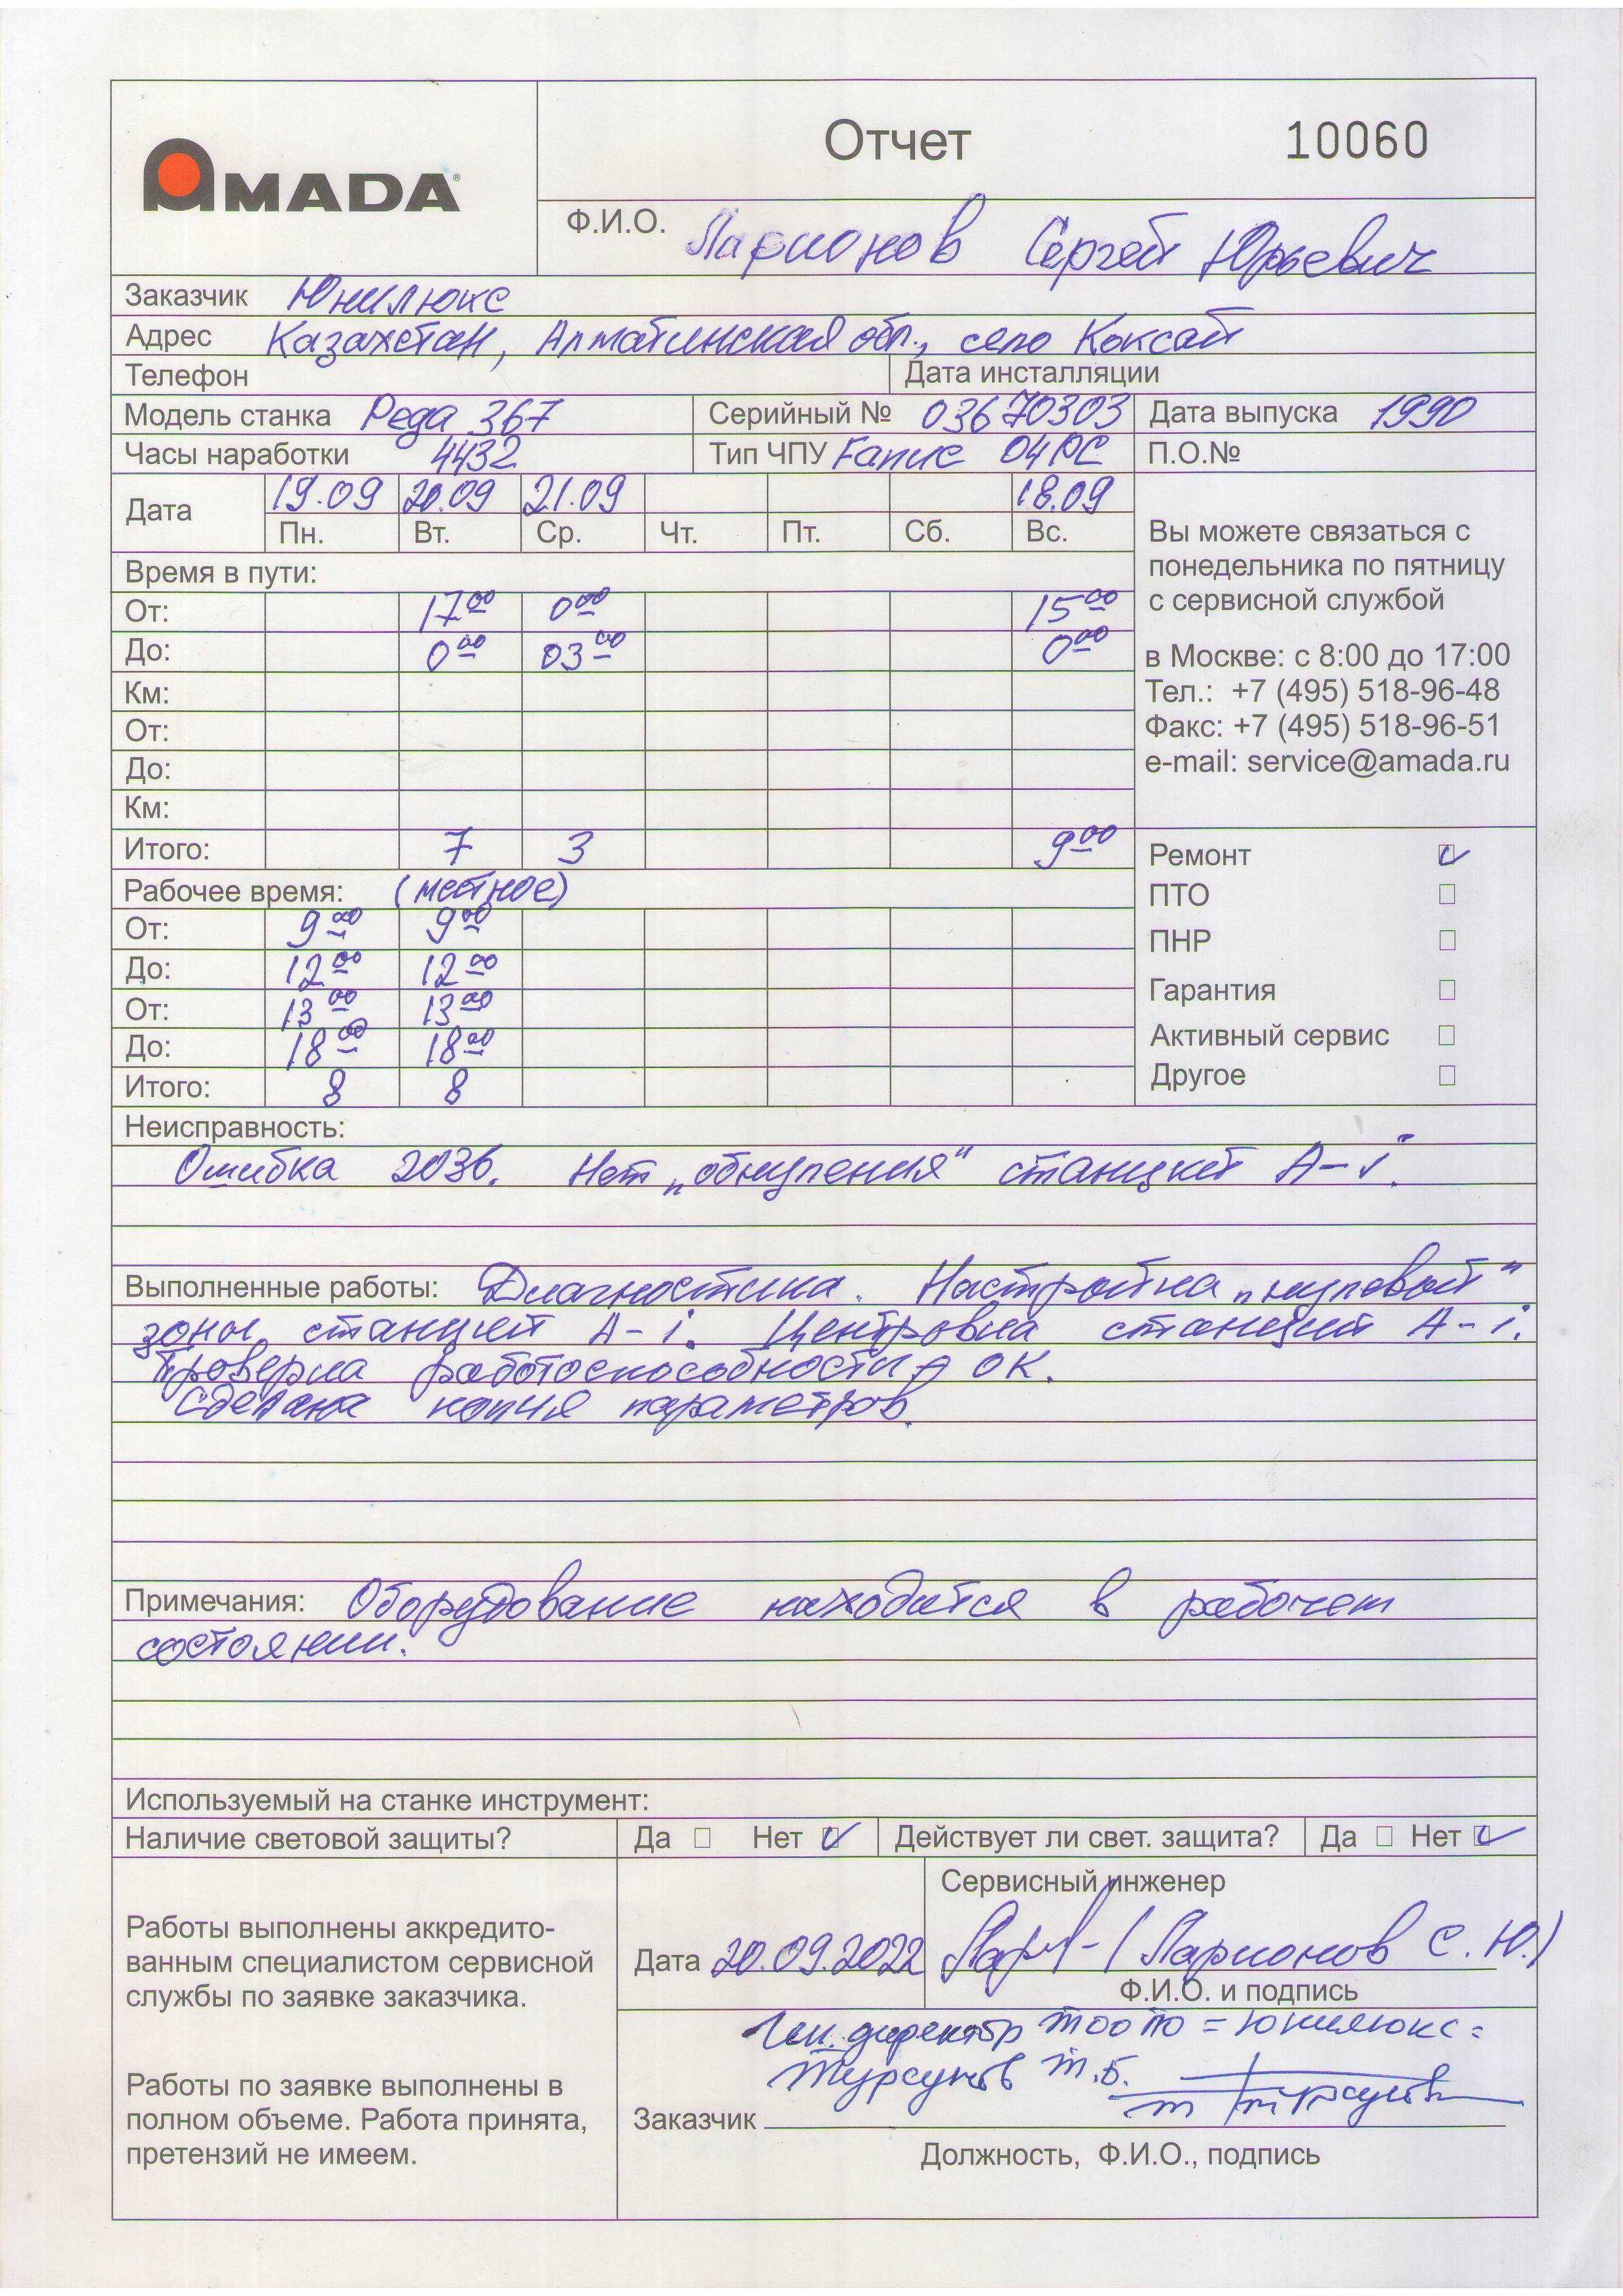 AMADA
Отчет 10060
Ф.И.О. Ларионов Сергей Юрьевич
Заказчик Юнилюкс
Адрес Казахстан, Алматинская обл., село Коксай
Телефон Дата инсталляции
Модель станка Pega 367 Серийный № 03670303 Дата выпуска 1990
Часы наработки 4432 Тип ЧПУ Fanuc 04PC П.О.№
Дата 19.09 20.09 21.09 18.09
Пн. Вт. Ср. Чт. Пт. Сб. Вс.
Время в пути:
От: 17 00 0 00 15 00
До: 0 00 03 00 0 00
Км:
От:
До:
Км:
Итого: 7 3 9 00
Рабочее время: (местное)
От: 9 00 9 00
До: 12 00 12 00
От: 13 00 13 00
До: 18 00 18 00
Итого: 8 8
Вы можете связаться с
понедельника по пятницу
с сервисной службой
в Москве: с 8:00 до 17:00
Тел.: +7 (495) 518-96-48
Факс: +7 (495) 518-96-51
e-mail: service@amada.ru
Ремонт
ПТО
ПНР
Гарантия
Активный сервис
Другое
Неисправность:
Ошибка 2036. Нет „обнуления“ станций A-i.
Выполненные работы: Диагностика. Настройка „нулевой“
зоны станций A-i. Центровка станций A-i.
Проверка работоспособности ОК.
Сделана копия параметров.
Примечания: Оборудование находится в рабочем
состоянии.
Используемый на станке инструмент:
Наличие световой защиты? Да Нет Действует ли свет. защита? Да Нет
Работы выполнены аккредито-
ванным специалистом сервисной
службы по заявке заказчика.
Дата 20.09.2022
Сервисный инженер
(Ларионов С.Ю.)
Ф.И.О. и подпись
Работы по заявке выполнены в
полном объеме. Работа принята,
претензий не имеем.
Ген. директор ТОО ПО =Юнилюкс=
Турсунов Т.Б.
Заказчик
Должность, Ф.И.О., подпись